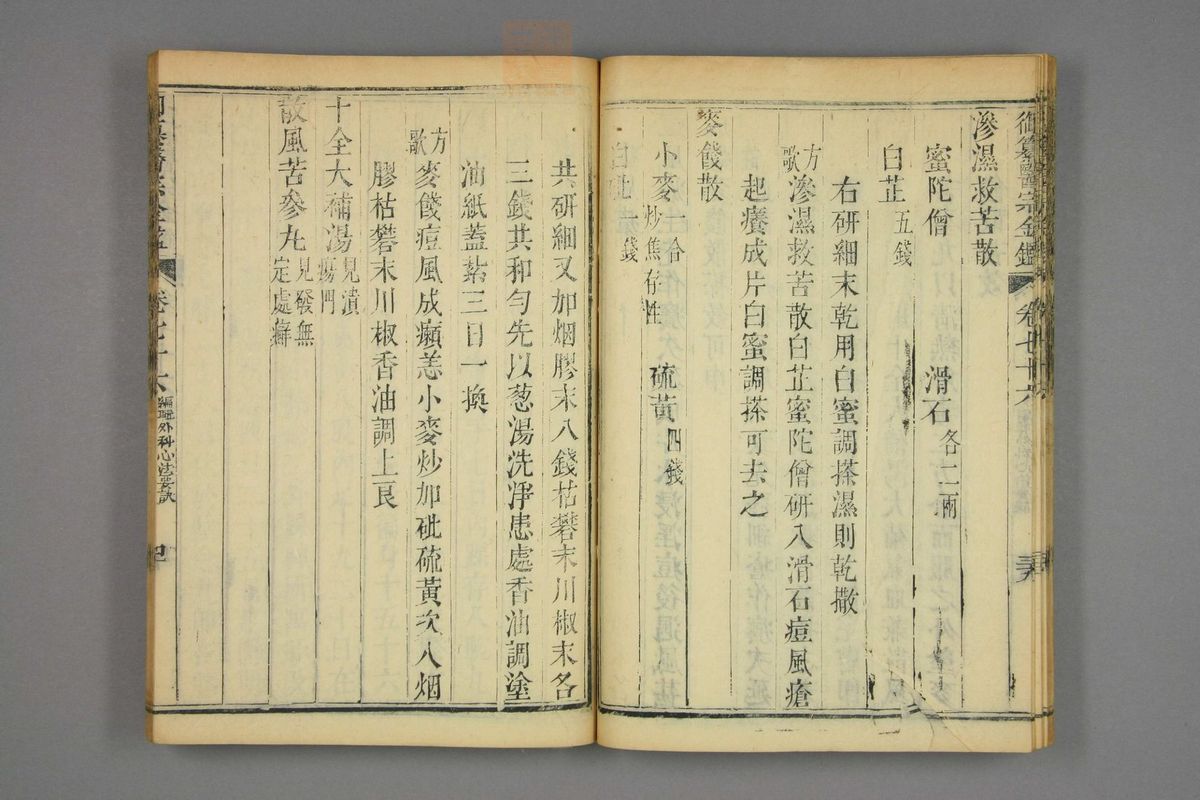 御纂醫宗金鑑 卷七十六
滲濕救苦散
蜜陀僧 滑石各二兩
白芷五錢
右研細末乾用白蜜調搽濕則乾撒
方歌 滲濕救苦散白芷蜜陀僧研入滑石痘風瘡
起癢成片白蜜調搽可去之
麥餞散
小麥一合炒焦存性 硫黃四錢
白砒一錢
共研細又加烟膠末八錢枯礬末川椒末各
三錢共和勻先以葱湯洗淨患處香油調塗
油紙蓋紮三日一換
方歌 麥餞痘風成癩恙小麥炒加砒硫黃次入烟
膠枯礬末川椒香油調上良
十全大補湯見潰瘍門
散風苦參丸見發無定處癬
卷七十六 編輯外科心法要訣